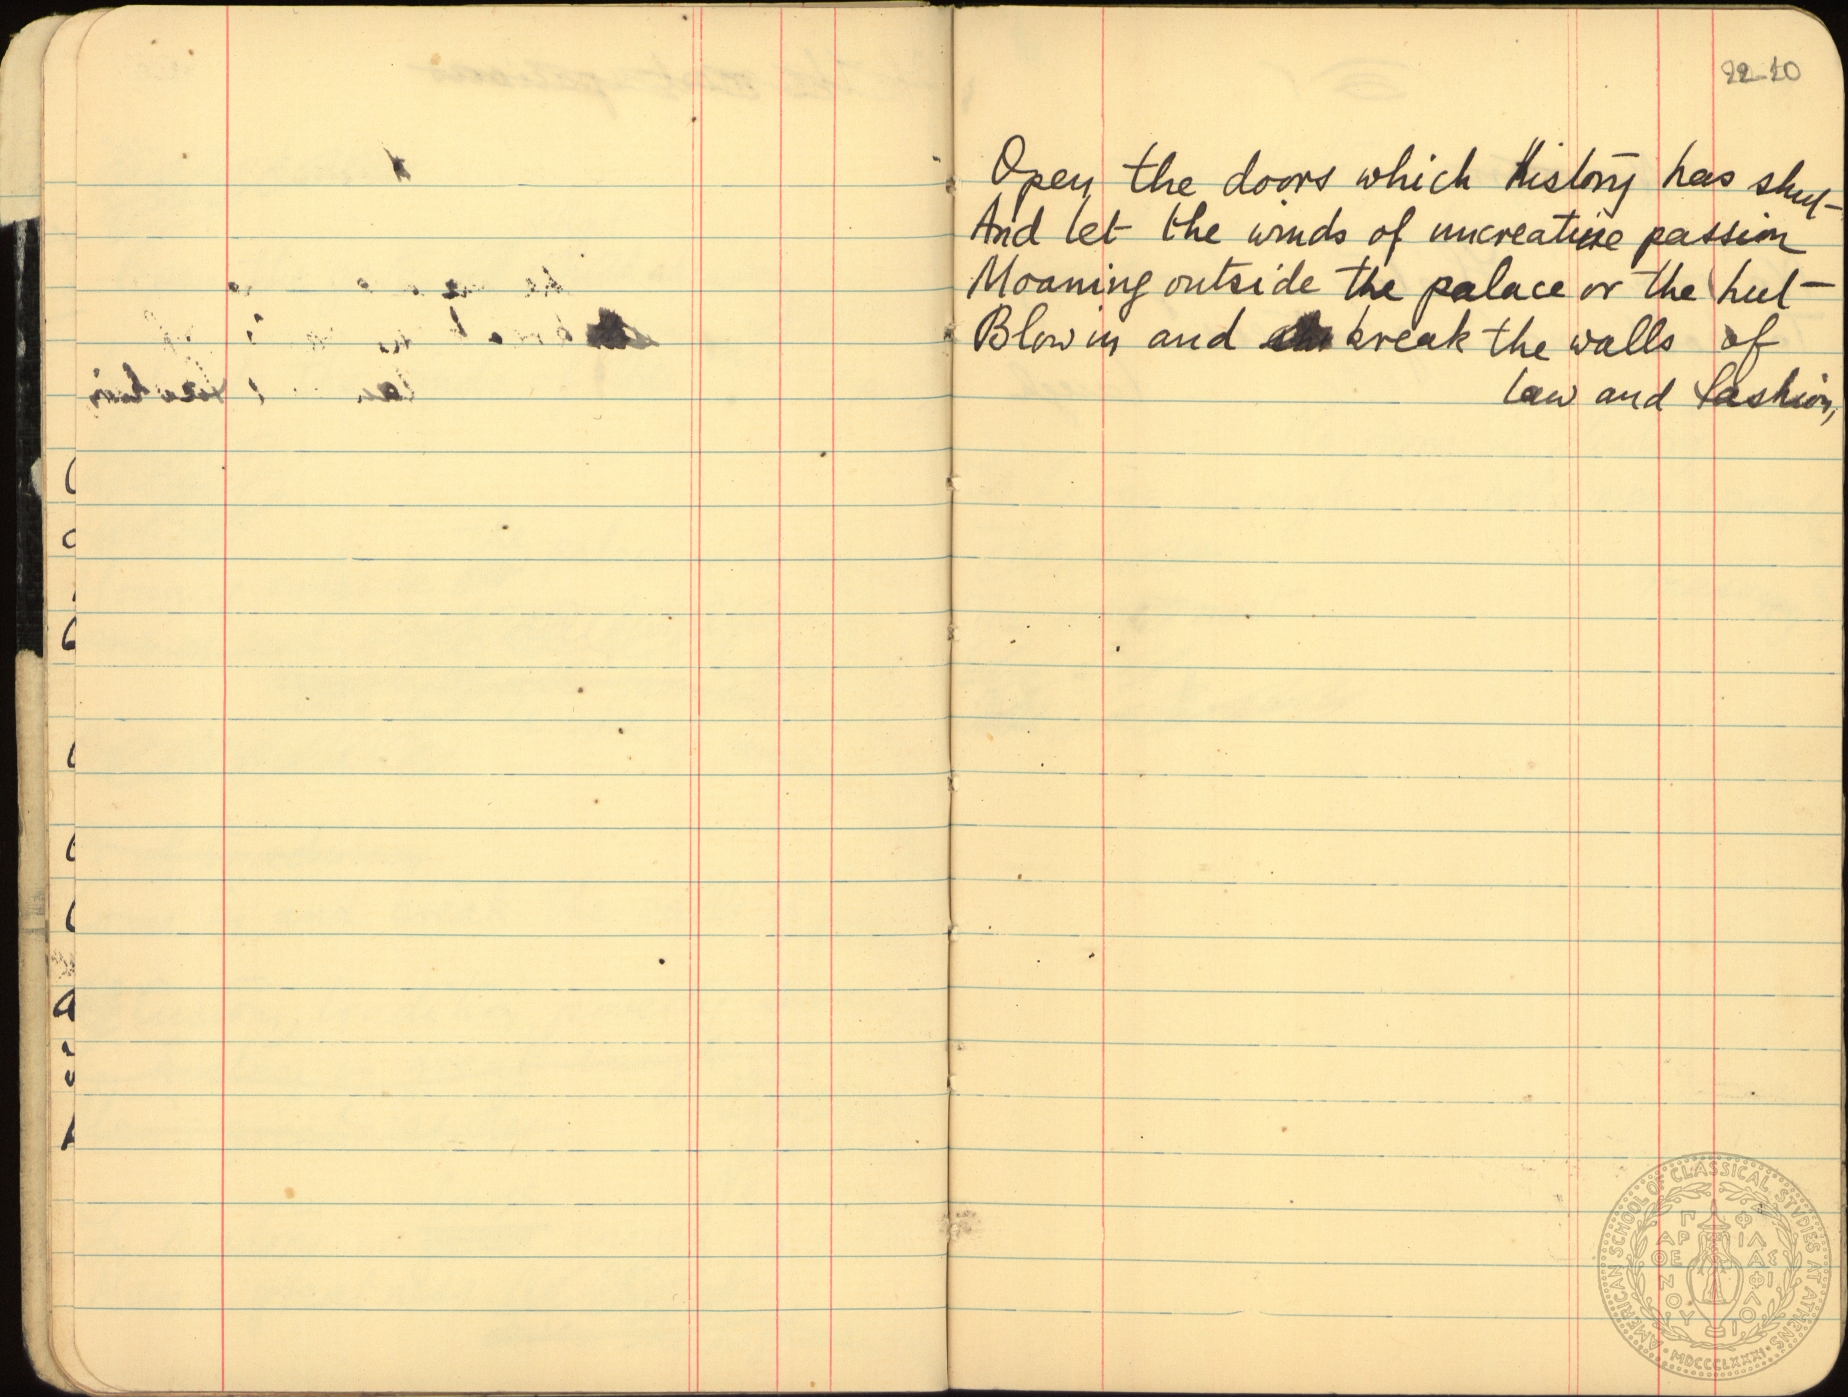 22-10
Open the doors which History has shut
And let the winds of uncreative passion
Moaning outside the palace or the hut
Blow in and break the walls of
law and fashion,
AMERICAN SCHOOL OF CLASSICAL STVDIES AT ATHENS
MDCCCLXXXI